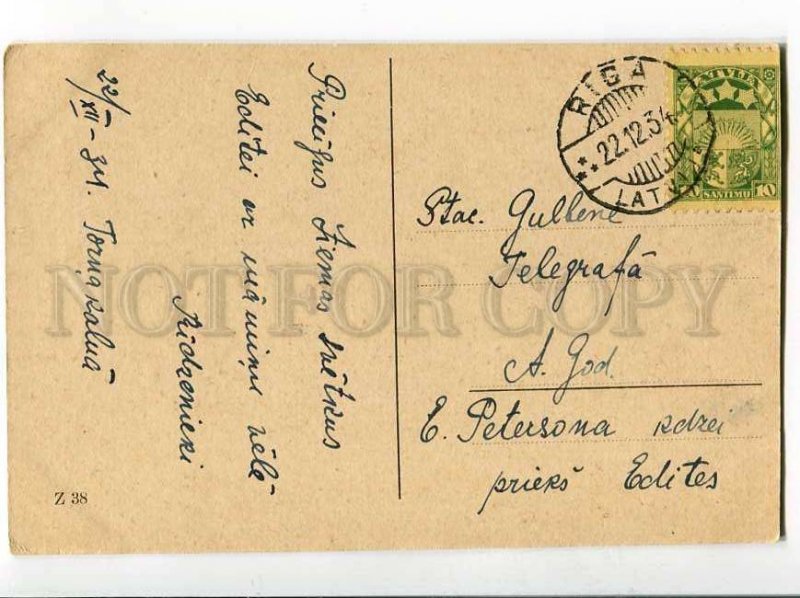 Priecīgus Ziemas svētkus
Editei ar māmiņu vēlē
Rīdzenieki
22/XII – 34. Torņakalnā
Z 38
RIGA
22.12.34
LATVIJA
LATVIJA
10 SANTIMU 10
Stac. Gulbene
Telegrafā
A. God.
E. Petersona kdzei
priekš Edites
NOT FOR COPY